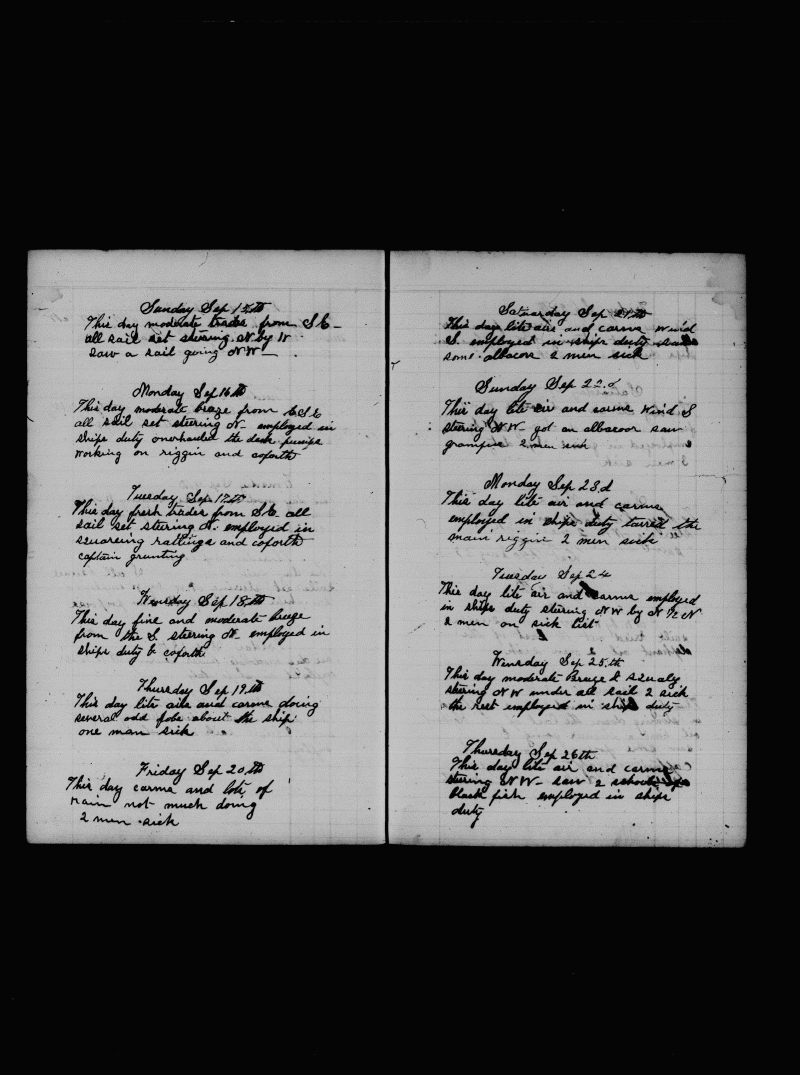 Sunday Sep 15th
This day moderate trades from S E
all sail set steering N by W
saw a sail going N W
Monday Sep 16th
This day moderate breze from E S E
all sail set steering N employed in
ships duty overhauled the deck pumps
working on riggin and coforth
Tuesday Sep 17th
This day fresh trades from S E all
sail set steering N. employed in
squareing rattlings and coforth
captain grunting
Wensday Sep 18th
This day fine and moderate breeze
from the S steering N employed in
ships duty & coforth
Thursday Sep 19th
This day lite airs and carms doing
several odd jobs about the ship
one man sick
Friday Sep 20th
This day carms and lots of
rain not much doing
2 men sick
Saturday Sep 21th
This day lite airs and carms Wind
S. employed in ships duty saw
some albacore 2 men sick
Sunday Sep 22.d
This day lite air and carms Wind S
steering N W got an albacoor saw
grampus 2 men sick
Monday Sep 23.d
This day lite air and carms
employed in ships duty tarred the
main riggin 2 men sick
Tuesday Sep 24
This day lite air and carms employed
in ships duty steering N W by N 1/2 N
2 men on sick list
Wensday Sep 25.th
This day moderate Breuze & squaly
steering N W under all sail 2 sick
the rest employed in ships duty
Thursday Sep 26th
This day lite air and carms
steering N W saw 2
black fish employed in ships
duty